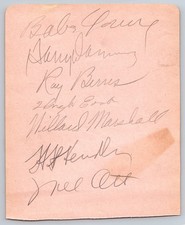 Babe Young
Harry Danning
Ray Berres
Hugh East
Willard Marshall
Mel Ott